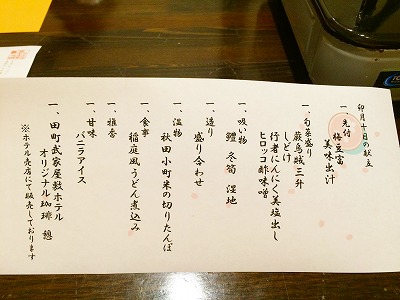 卯月十日の献立
一、先付
梅豆富
美味出汁
一、旬菜盛り
蕨烏賊三升
しどけ
行者にんにく美塩出し
ヒロッコ酢味噌
一、吸い物
鱧 冬筍 湿地
一、造り
盛り合わせ
一、温物
秋田小町米の切りたんぽ
一、食事
稲庭風うどん煮込み
一、雅香
一、甘味
バニラアイス
一、田町武家屋敷ホテル
オリジナル珈琲 憩
※ホテル売店にて販売しております